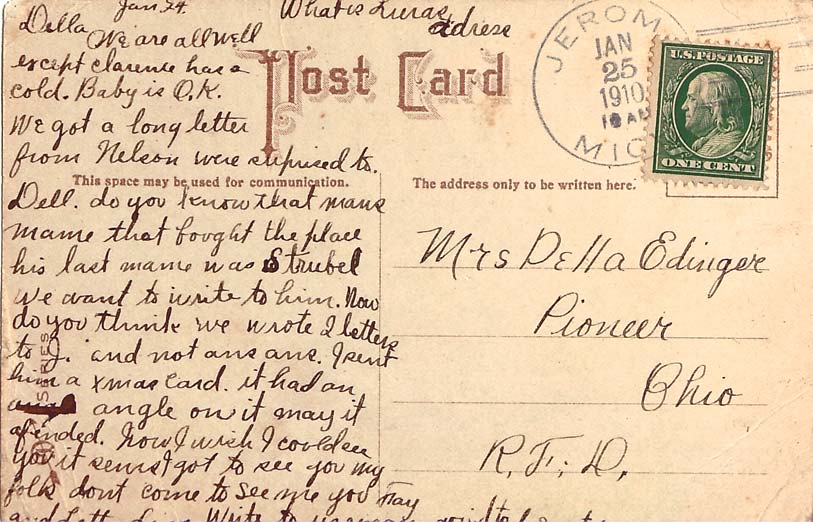 Jan 24. What is Luras
adrese
Della
We are all well
except clarence has a
cold. Baby is O.K.
We got a long letter
from Nelson were suprised to.
Post Card
This space may be used for communication.
Dell. do you know that mans
mame that bought the place
his last mame was Strubel
We want to write to him. Now
do you think we wrote 2 letters
to J. and not ans ans. I sent
him a xmas card. it had an
angle on it may it
afended. how I wish I could see
you it sems I got to see you my
folk dont come to see me you Fay
and Write to
SERIES
JEROME
JAN
25
1910
MICH
U.S. POSTAGE
ONE CENT
The address only to be written here.
Mrs Della Edinger
Pioneer
Ohio
R. F. D.